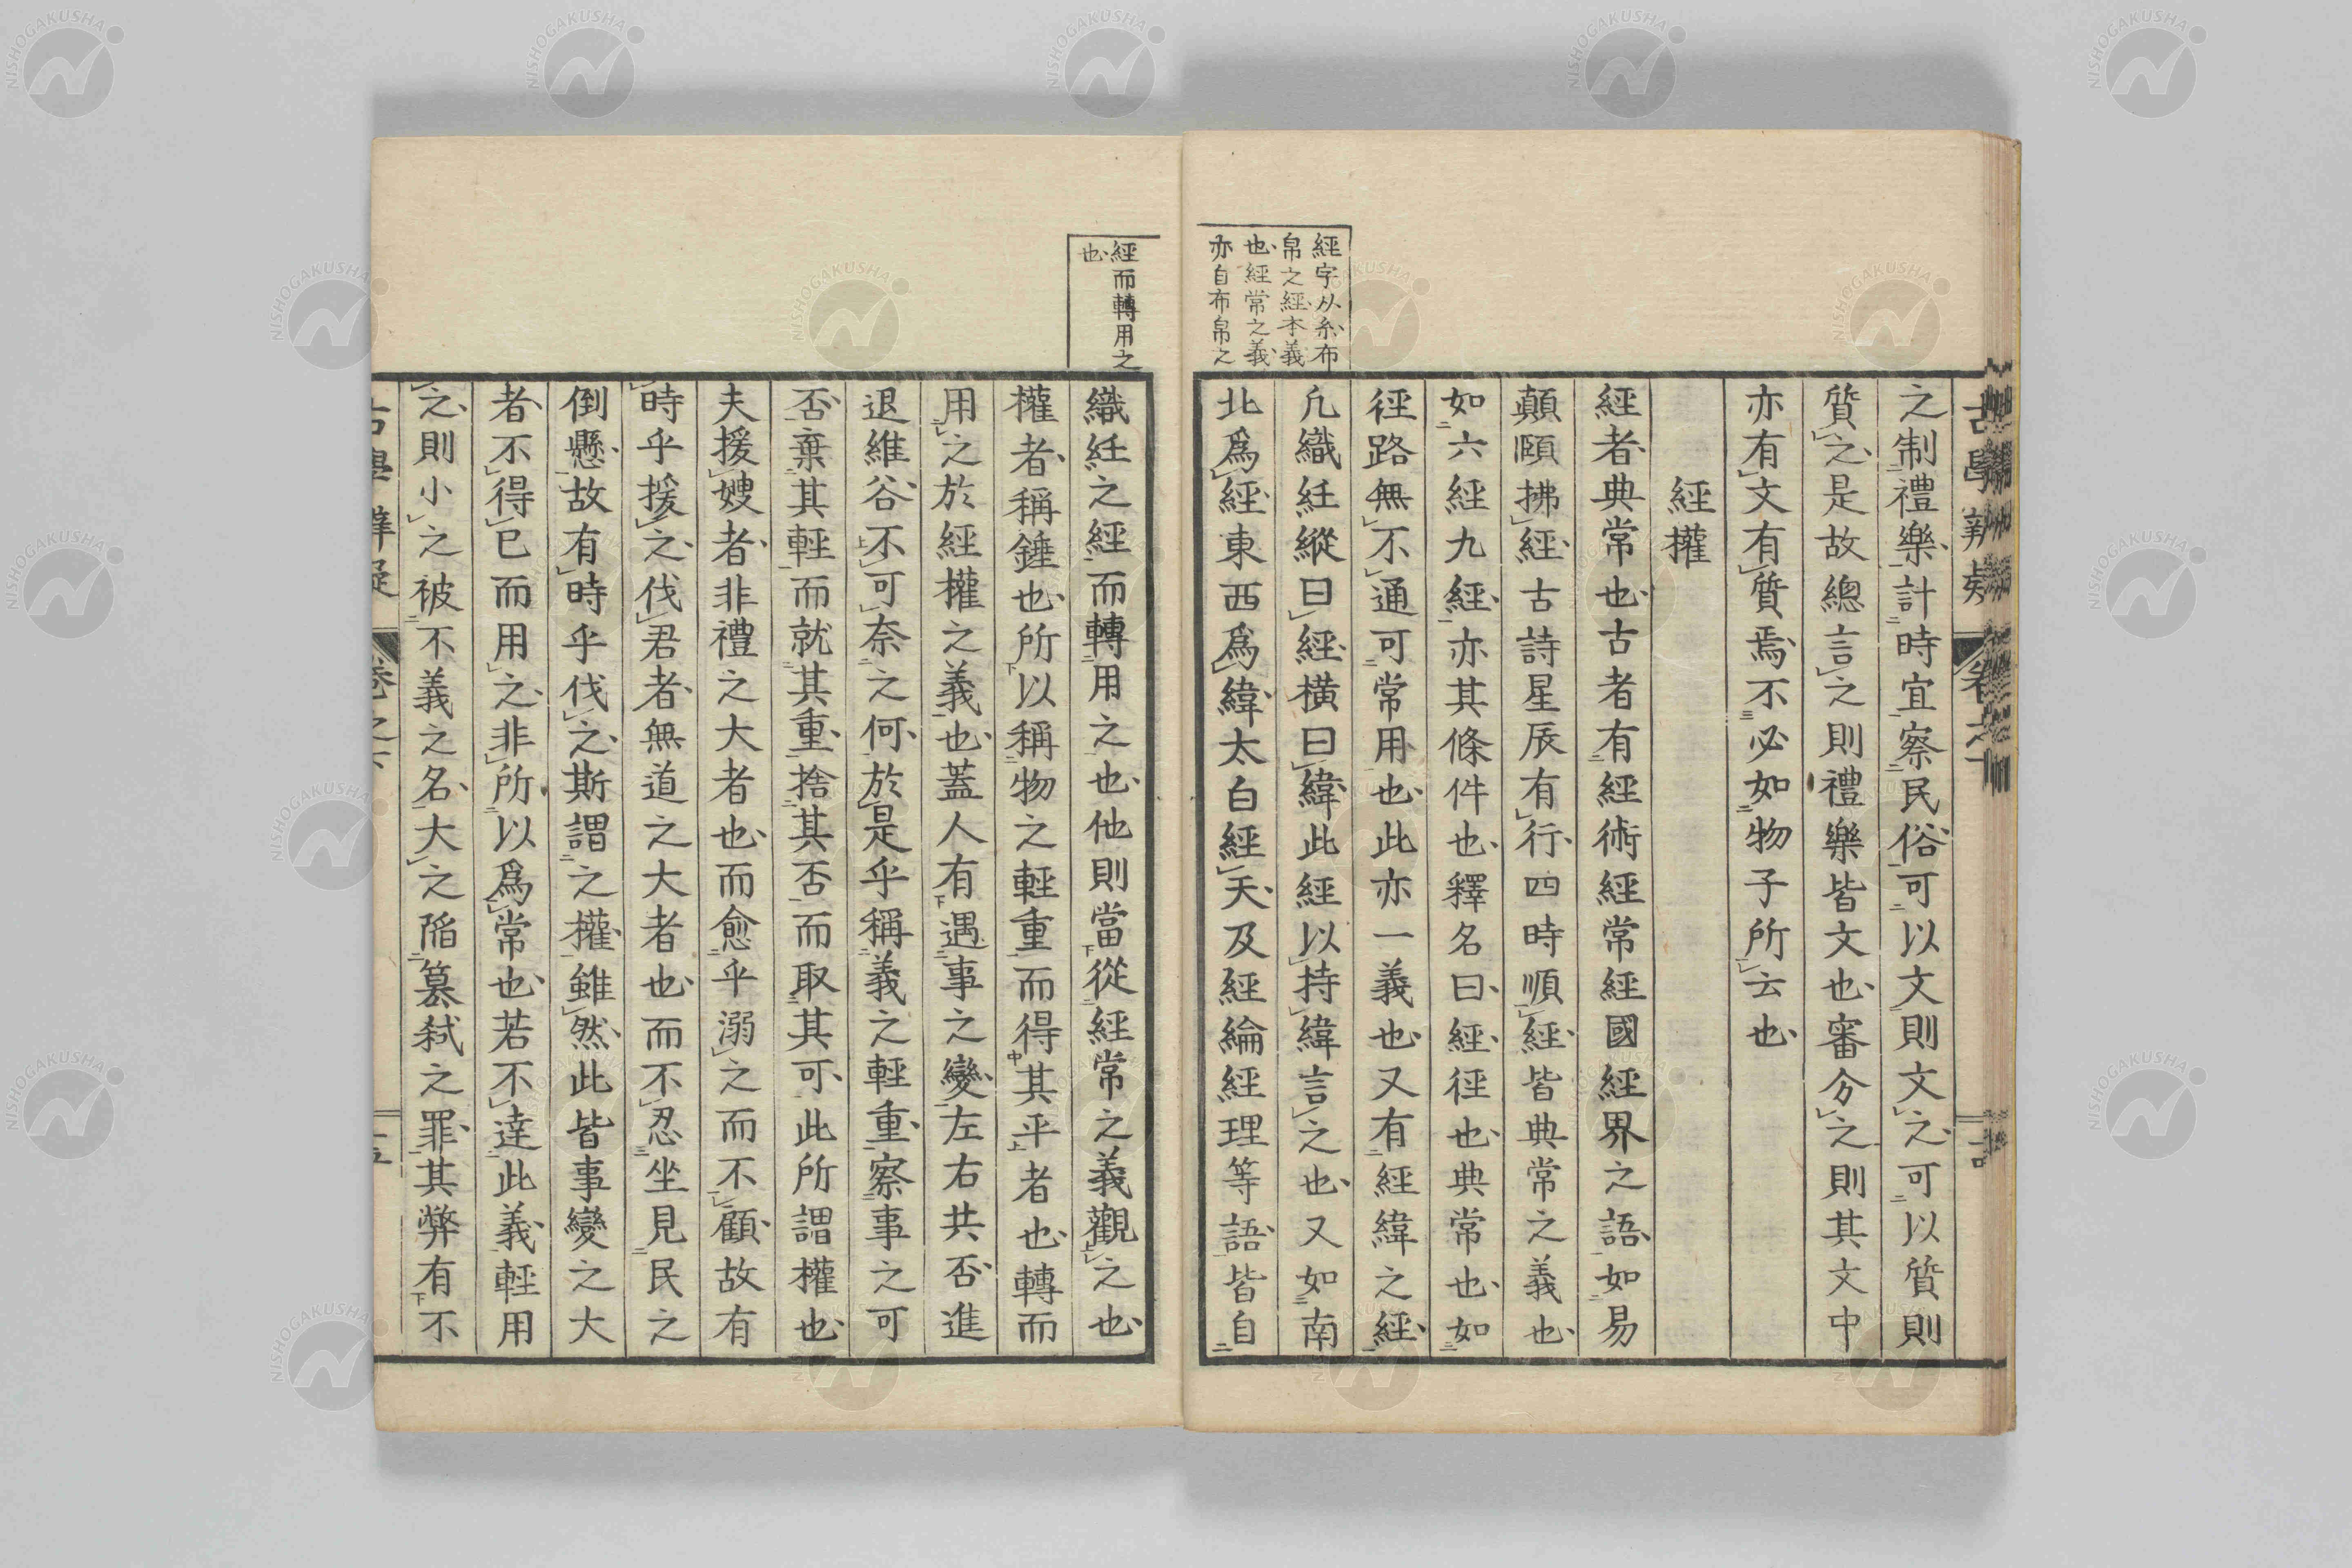 經字以糸布
帛之經本義
也經常之義
亦自布帛之
之制禮樂計時宜察民俗可以文則文之可以質則
質之是故總言之則禮樂皆文也審分之則其文中
亦有文有質焉不必如物子所云也
經權
經者典常也古者有經術經常經國經界之語如易
顛頤拂經古詩星辰有行四時順經皆典常之義也
如六經九經亦其條件也釋名曰經徑也典常也如
徑路無不通可常用也此亦一義也又有經緯之經
凡織紝縱曰經橫曰緯此經以持緯言之也又如南
北爲經東西爲緯太白經天及經綸經理等語皆自
經而轉用之
也
織紝之經而轉用之也他則當從經常之義觀之也
權者稱錘也所以稱物之輕重而得其平者也轉而
用之於經權之義也蓋人有遇事之變左右共否進
退維谷不可奈之何於是乎稱義之輕重察事之可
否棄其輕而就其重捨其否而取其可此所謂權也
夫援嫂者非禮之大者也而愈乎溺之而不顧故有
時乎援之伐君者無道之大者也而不忍坐見民之
倒懸故有時乎伐之斯謂之權雖然此皆事變之大
者不得已而用之非所以爲常也若不達此義輕用
之則小之被不義之名大之陷篡弑之罪其弊有不
古學辨疑 卷之下 二五
NISHOGAKUSHA